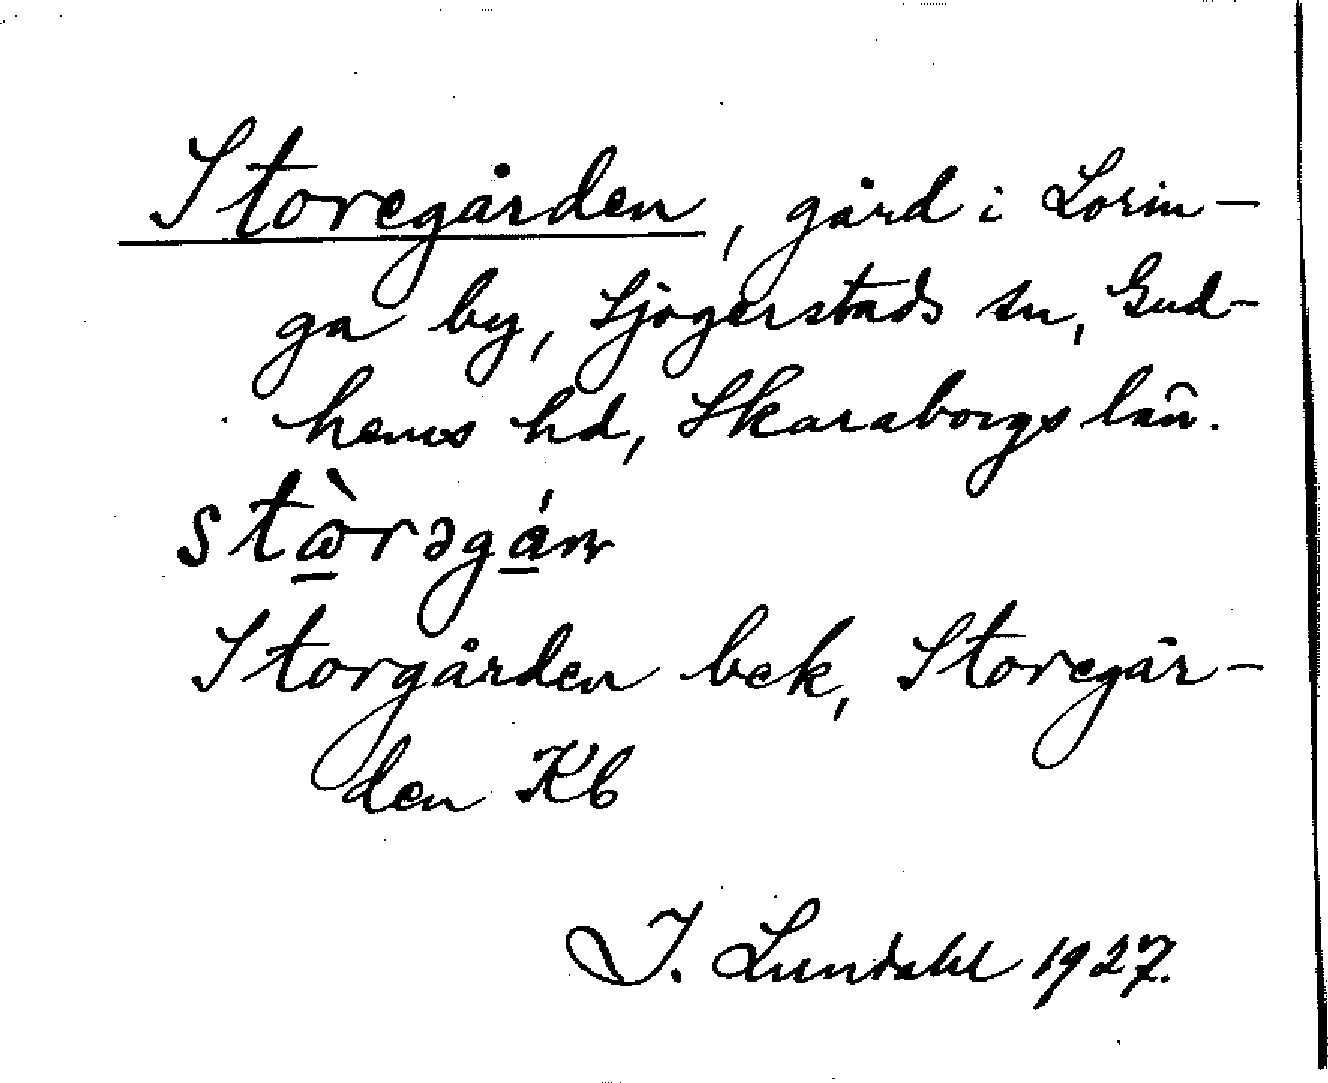 Storegården, gård i Lorin-
ga by, Sjogerstads sn, Gud-
hems hd, Skaraborgs län.
stὼ̲rəgá̲ɳ
Storgården bek, Storegår-
den Kb
I. Lundahl 1927.